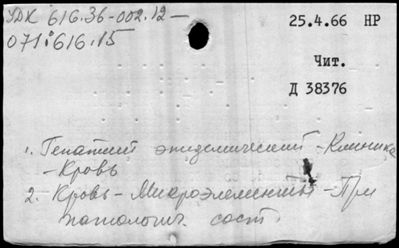 УДК 616.36-002.12-
071:616.15
25.4.66 НР
Чит.
Д 38376
1. Гепатит эпидемический - Клиника
- Кровь
2. Кровь - Микроэлементы - При
патологич. сост.